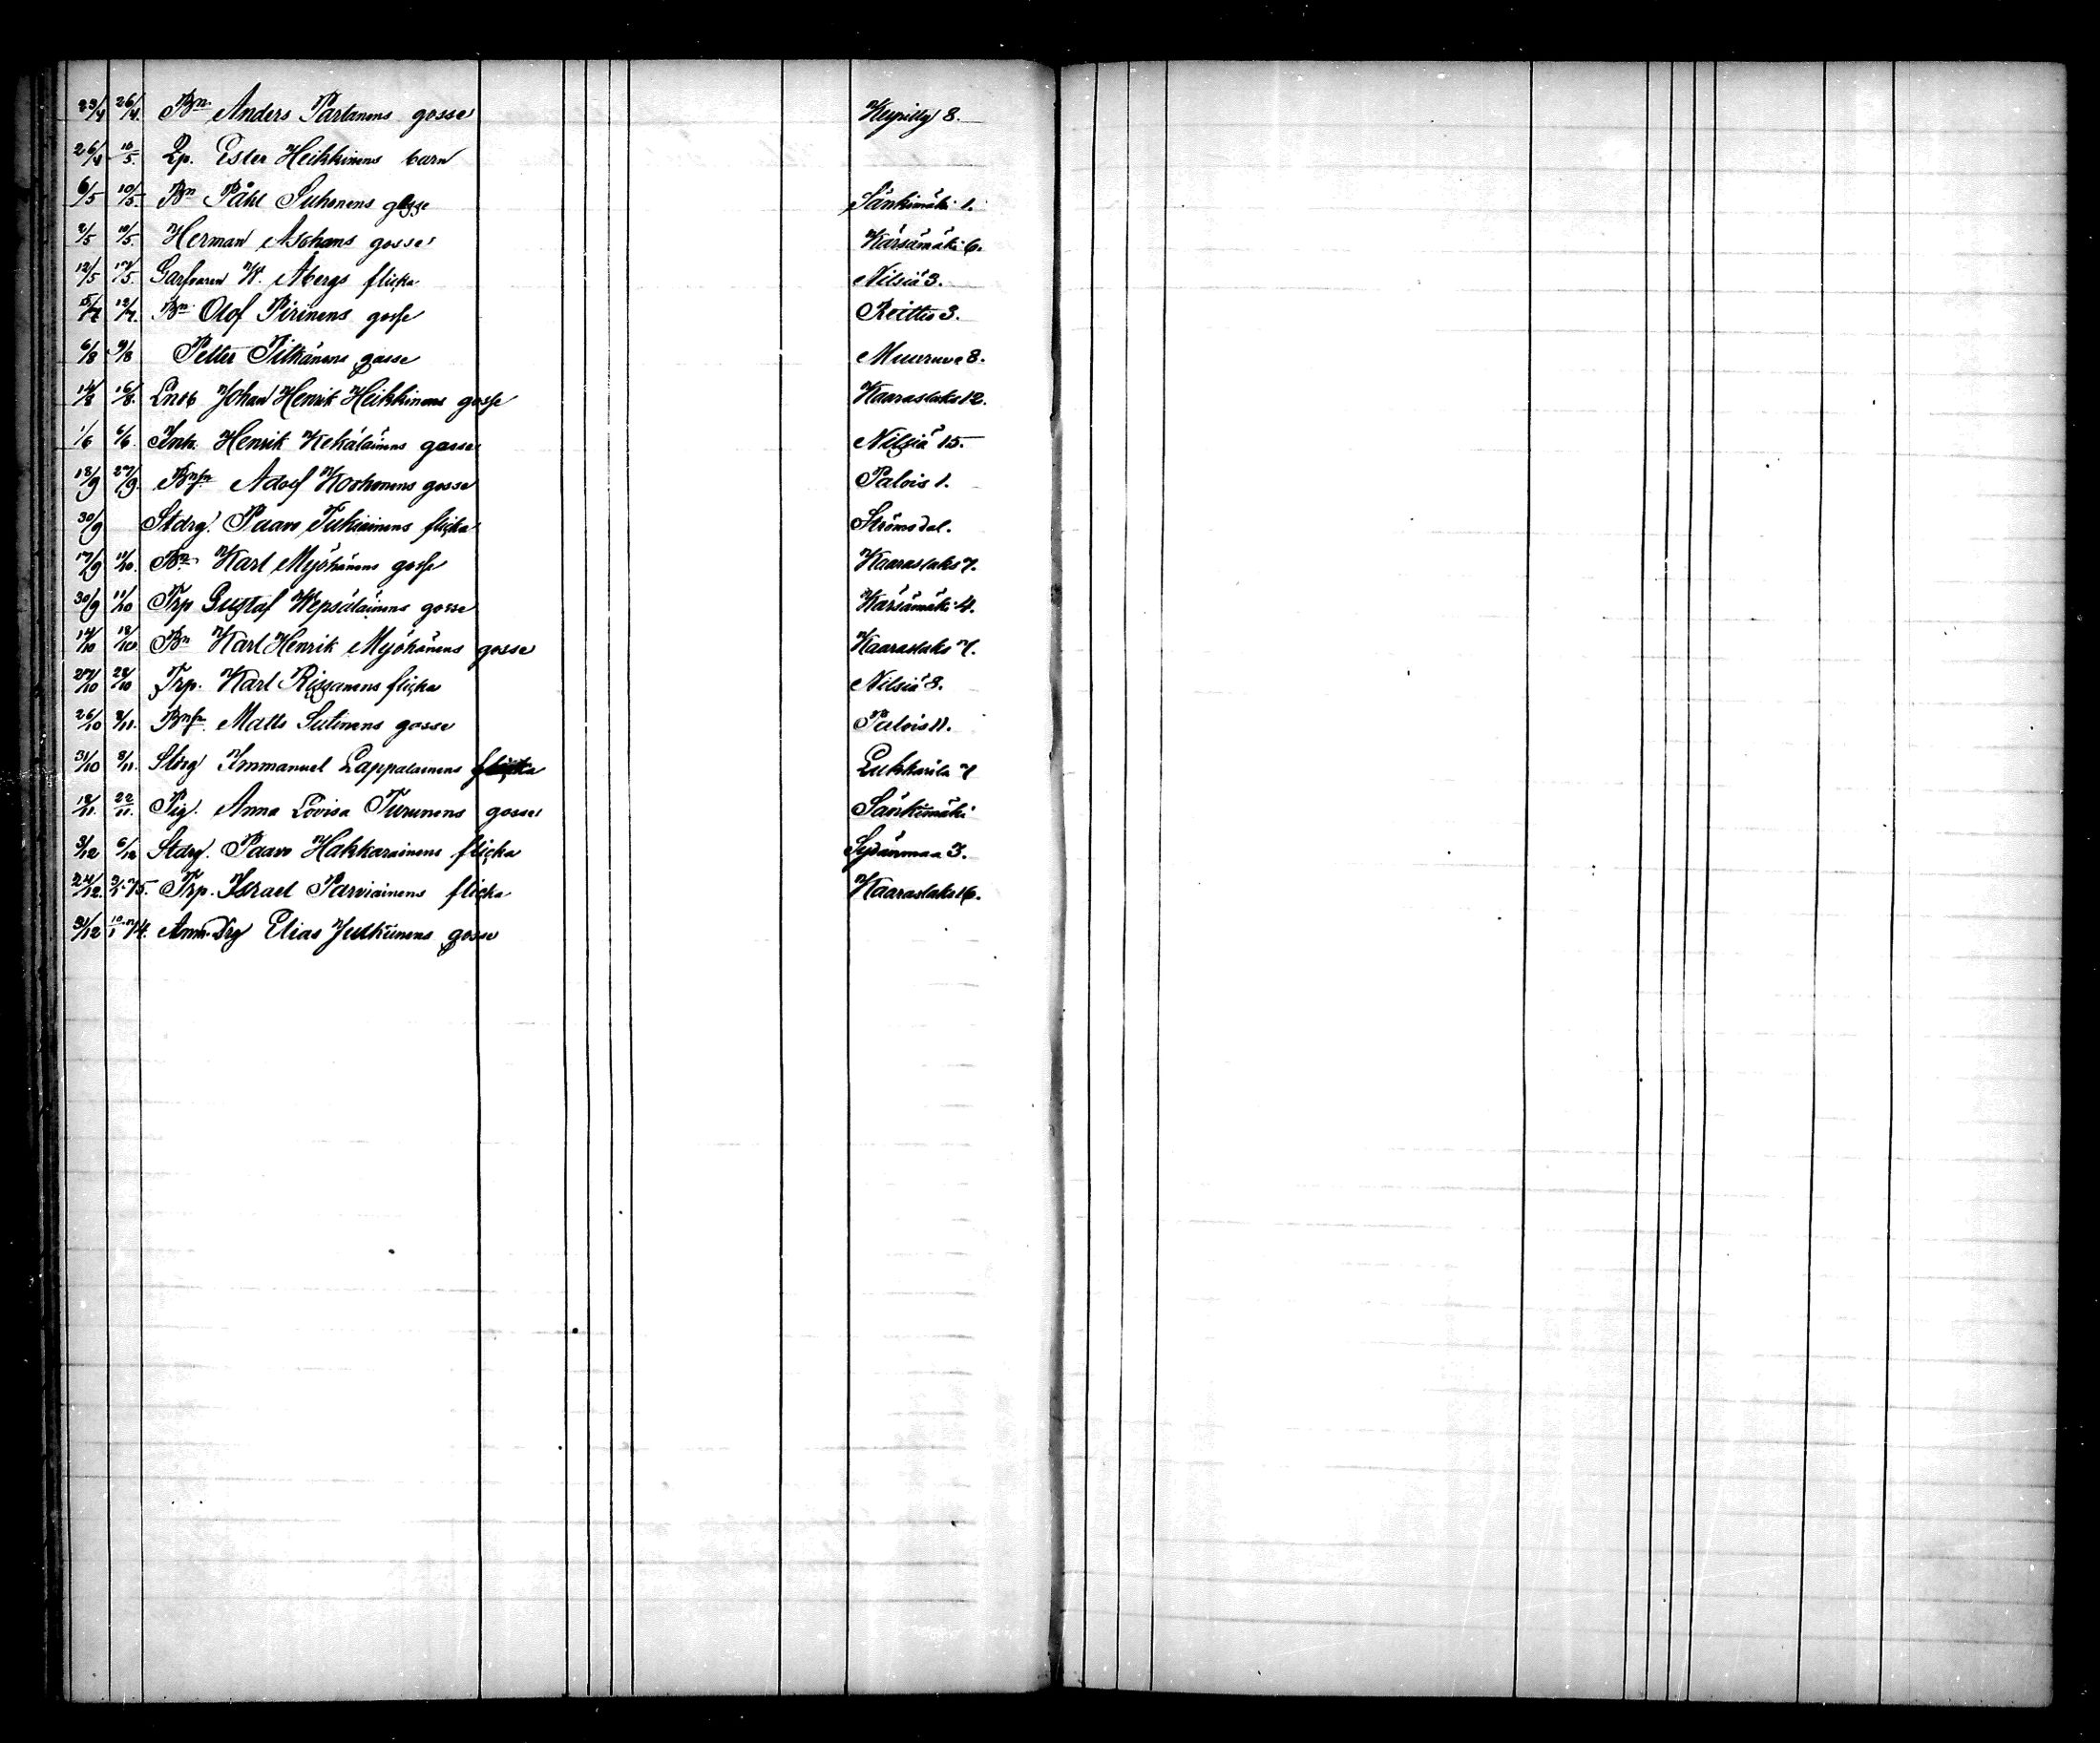 23/4 26/4. Bn. Anders Partanens gosse 8.
26/4 10/5. Lp. Ester Heikkinens barn
6/5 10/5 Bn Påhl Suhonens gosse Sänkimäki 1.
2/5 10/5. Herman Aschans gosse Kärsämäki 6.
12/5 17/5. Garfvaren K. Åbergs flicka Nilsiä 3.
5/7 12/7. Bn Olof Pirinens gosse Reittio 3.
6/8 9/8 Petter Pitkänens gosse Muuruve 8.
14/8 16/8. Enkb Johan Henrik Heikkinens gosse Kaaraslaks 12.
1/6 6/6. Inh. Henrik Kekäläinens gosse Nilsiä 15.
18/9 27/9. Bnfn Adolf Korhonens gosse Palois 1.
30/9 Stdrg. Paavo Tukiainens flicka Strömsdal.
17/9 11/10. Bn Karl Myöhänens gosse Kaaraslaks 7.
30/9 11/10 Trp Gustaf Wepsäläinens gosse Kärsämäki 4.
14/10 18/10 Bn Karl Henrik Myöhänens gosse Kaaraslaks 7.
27/10 28/10 Trp. Karl Rissanens flicka Nilsiä 8.
26/10 8/11. Bnfn. Matts Sutinens gosse Palois 11.
31/10 8/11. Stdrg Immanuel Lappalainens flicka Lukkarila 7
18/11. 22/11. Pig. Anna Lovisa Turunens gosse Sänkimäki
3/12 6/12 Stdrg. Paavo Hakkarainens flicka Sydänmaa 3.
24/12. 3/1 75. Trp. Israel Parviainens flicka Kaaraslaks 16.
31/12 10/1 74. Anm. Drg Elias Juutinens gosse